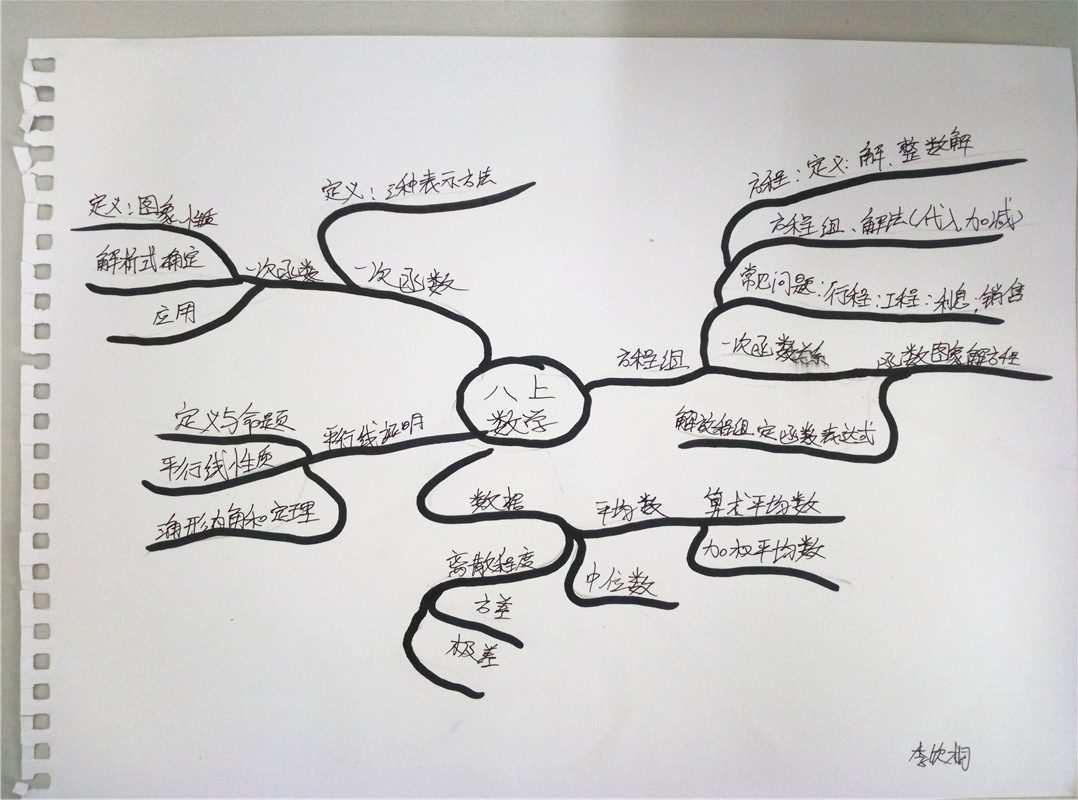 八上
数学
方程组
方程：定义：解、整数解
方程组、解法(代入、加减)
常见问题：行程；工程；利息；销售
一次函数关系
函数图象解方程
解放程组定函数表达式
数据
平均数
算术平均数
加权平均数
中位数
离散程度
方差
极差
平行线证明
定义与命题
平行线性质
三角形内角和定理
一次函数
定义：三种表示方法
一次函数
定义：图象性质
解析式确定
应用